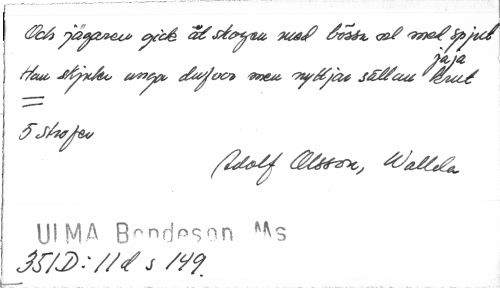 Och jägaren gick åt skogen med bössa och med spjut
jaja
Han skjuter unga dufvor men nyttjar sällan krut
5 strofer
Adolf Olsson, Wallda
ULMA Bondeson Ms
351D:11d s 149.